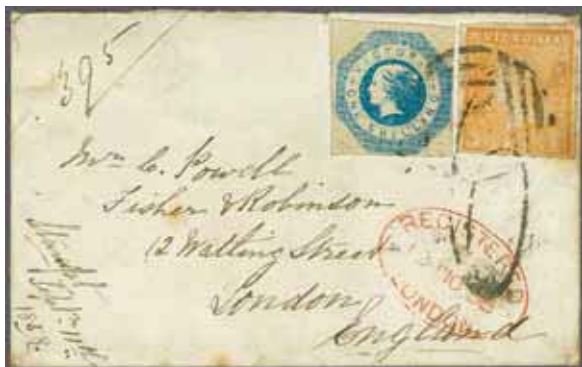 39 5
VICTORIA
ONE SHILLING
VICTORIA
Mrs C. Powell
Fisher & Robinson
12 Watling Street
London
England
REGISTERED
LONDON
1858